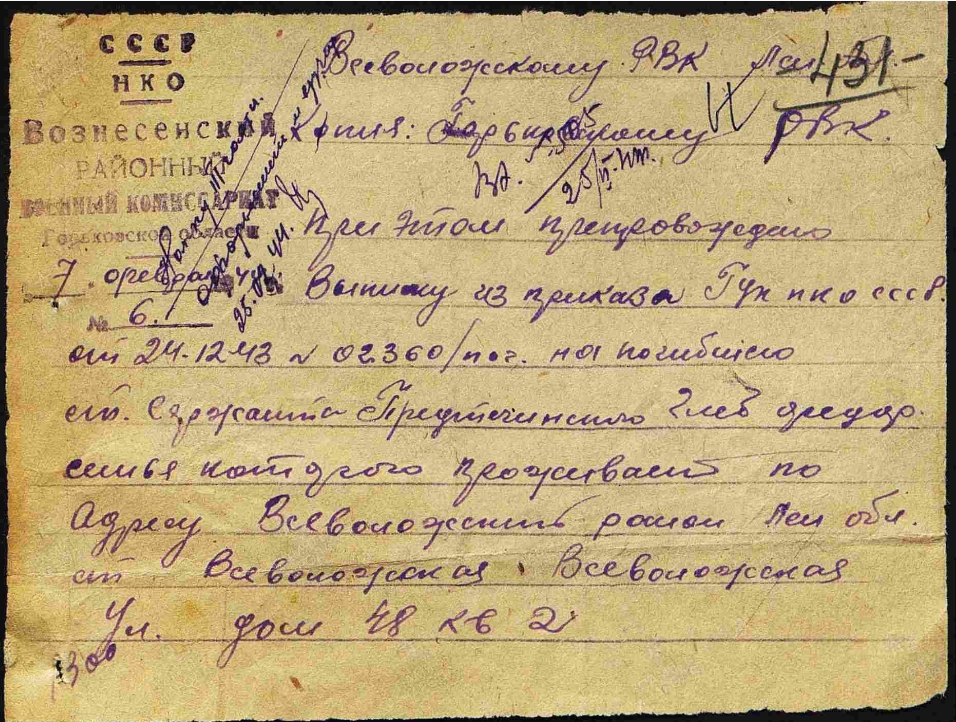 СССР
НКО
Вознесенский
РАЙОННЫЙ
ВОЕННЫЙ КОМИССАРИАТ
Горьковской области
7. февраля
№ 6.
Всеволожскому РВК Лен
-431-
Копия: Горьковскому РВК.
Вх.
25/II
25.02
При этом препровождаю
Выписку из приказа Гук нко ссср.
от 24-12-43 № 02360/пог. на погибшего
ст. Сержанта Предтечинского Глеб федор.
семья которого проживает по
Адресу Всеволожский район Лен обл.
ст Всеволожская Всеволожская
Ул. дом 48 кв 2